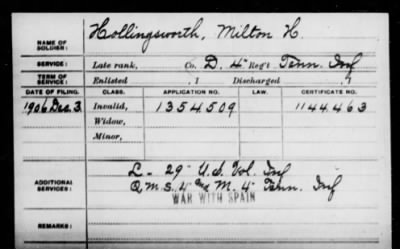 NAME OF SOLDIER: Hollingsworth, Milton H.
SERVICE: Late rank, Co. D. 4" Reg't Tenn. Inf
TERM OF SERVICE: Enlisted , 1 Discharged , 1
DATE OF FILING. CLASS. APPLICATION NO. LAW. CERTIFICATE NO.
1906 Dec. 3. Invalid, 1354509 1144463
Widow,
Minor,
L - 29" U.S. Vol. Inf
ADDITIONAL SERVICES: Q.M.S. 4" and M. 4" Tenn. Inf
WAR WITH SPAIN
REMARKS: